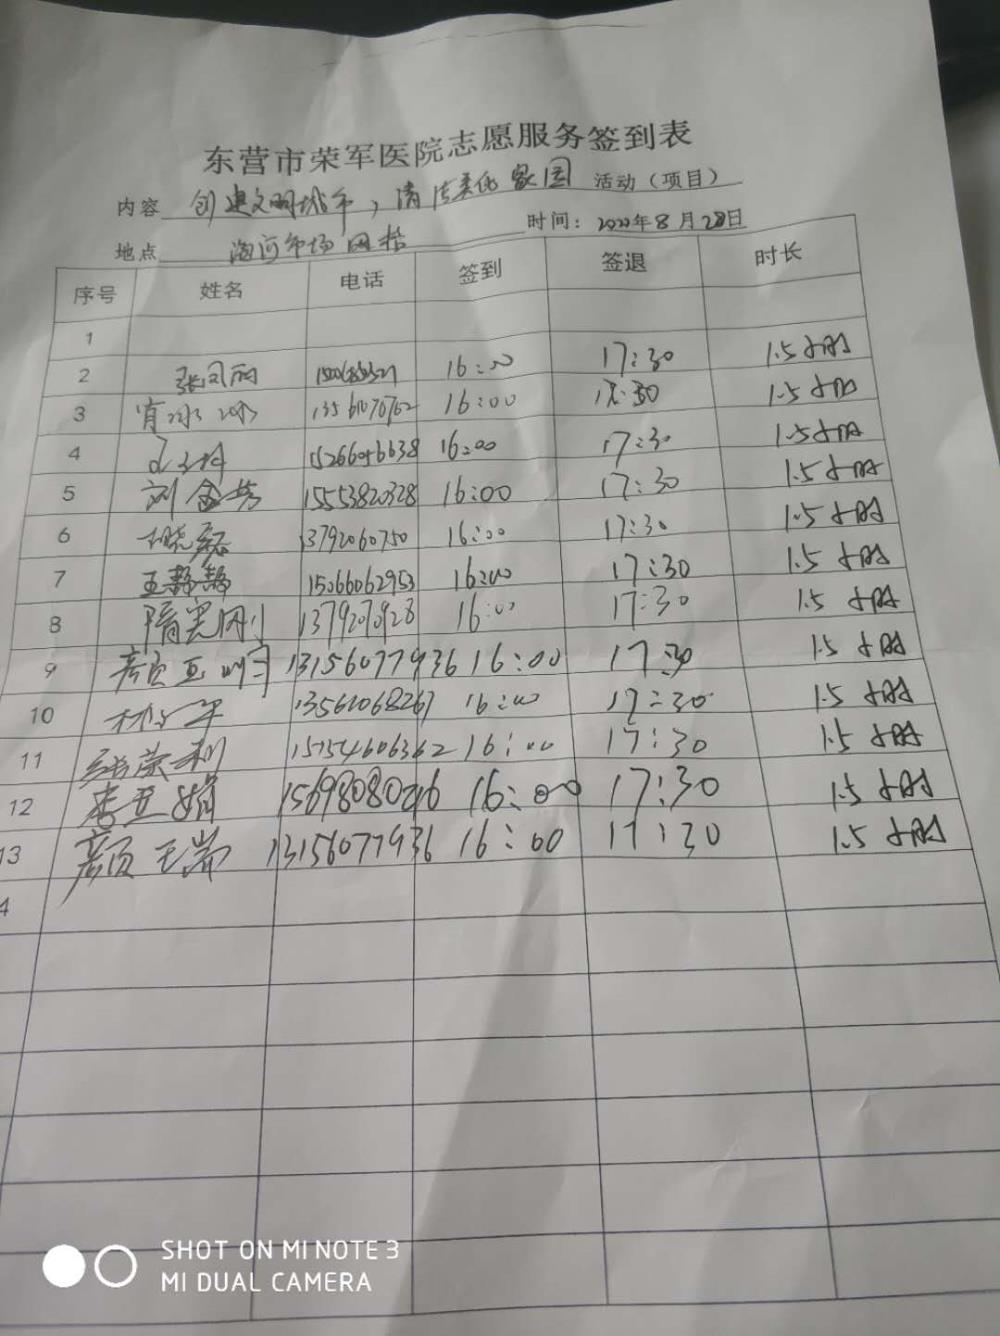 东营市荣军医院志愿服务签到表
内容 创建文明城市，清洁美化家园 活动（项目）
地点 市场网格 时间：2020年8月28日
序号 姓名 电话 签到 签退 时长
1
2 张凤丽 16:00 17:30 1.5小时
3 肖冰冰 13561076762 16:00 17:30 1.5小时
4 15266056638 16:00 17:30 1.5小时
5 刘金芳 15553820328 16:00 17:30 1.5小时
6 13792060750 16:00 17:30 1.5小时
7 王静静 15066062953 16:00 17:30 1.5小时
8 隋宪刚 16:00 17:30 1.5小时
9 颜亚 13156077936 16:00 17:30 1.5小时
10 13561068267 16:00 17:30 1.5小时
11 荣利 15154606362 16:00 17:30 1.5小时
12 李亚娟 15698080216 16:00 17:30 1.5小时
13 颜 13156077936 16:00 17:30 1.5小时
4
SHOT ON MI NOTE 3
MI DUAL CAMERA